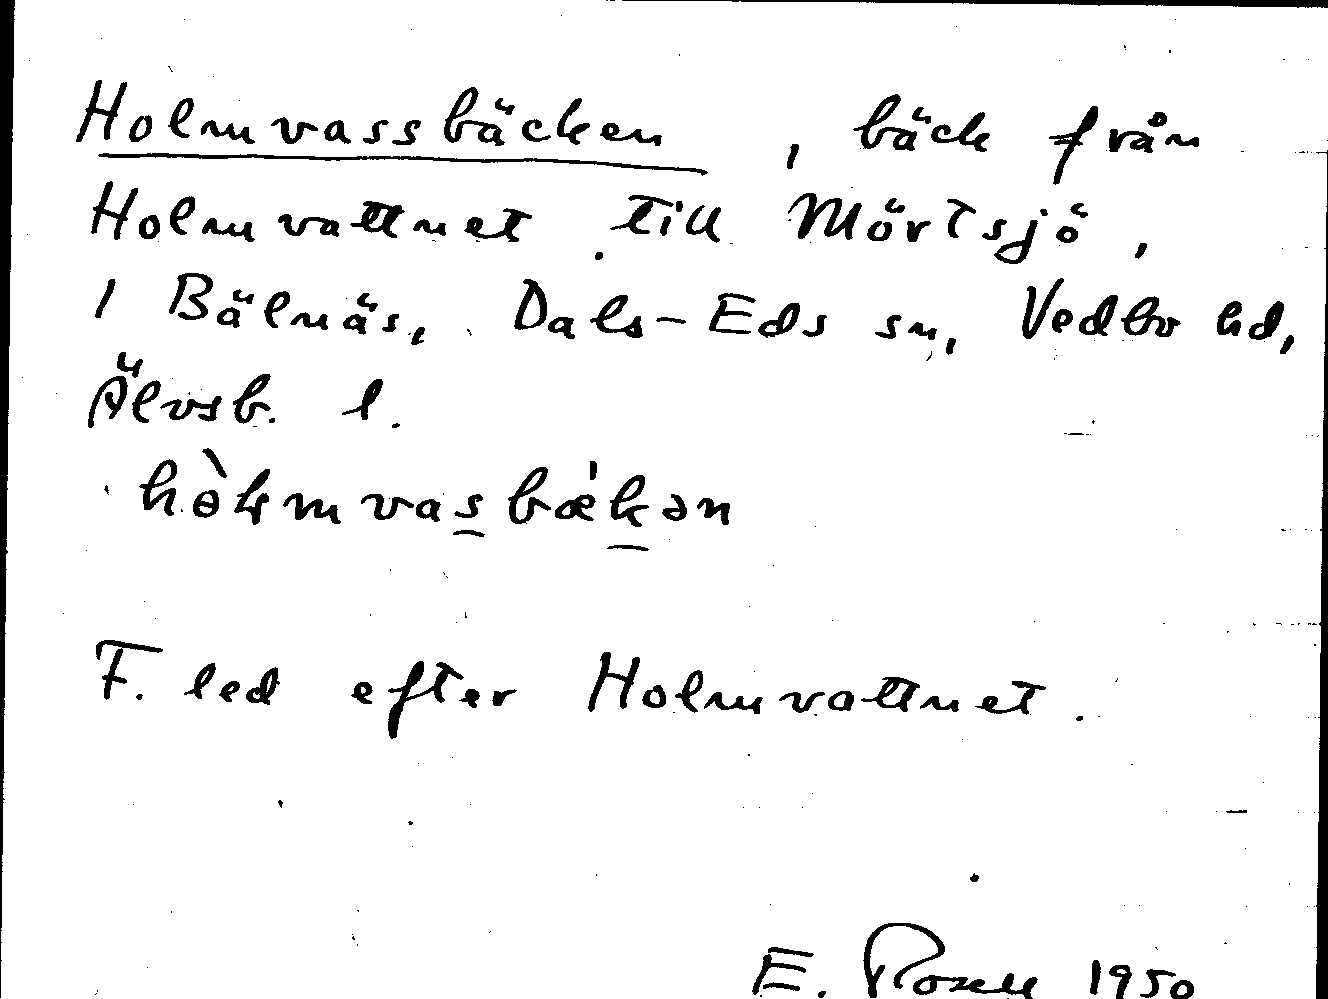 Holmvassbäcken, bäck från
Holmvattnet till Mörtsjö,
i Bälnäs, Dals-Eds sn, Vedbo hd,
Älvsb. l.
F. led efter Holmvattnet.
E. Rosell 1950